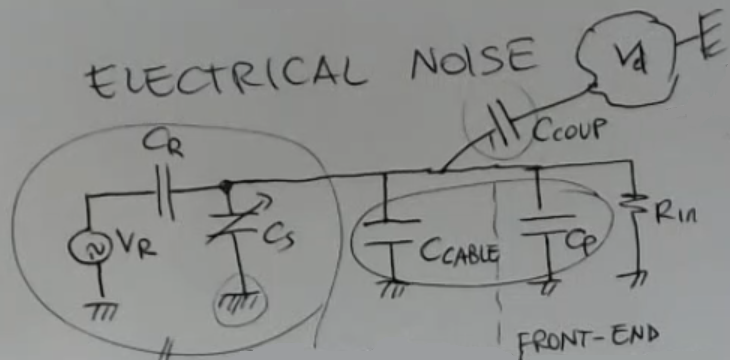 ELECTRICAL NOISE
Vd
CCOUP
CR
VR
CS
CCABLE
CP
Rin
FRONT-END